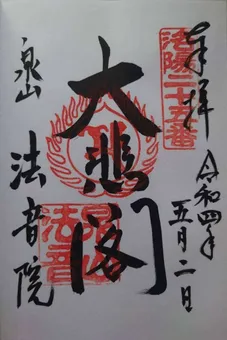 奉拝
令和四年
五月二日
洛陽二十五番
大悲閣
泉山
法音院
泉山
法音